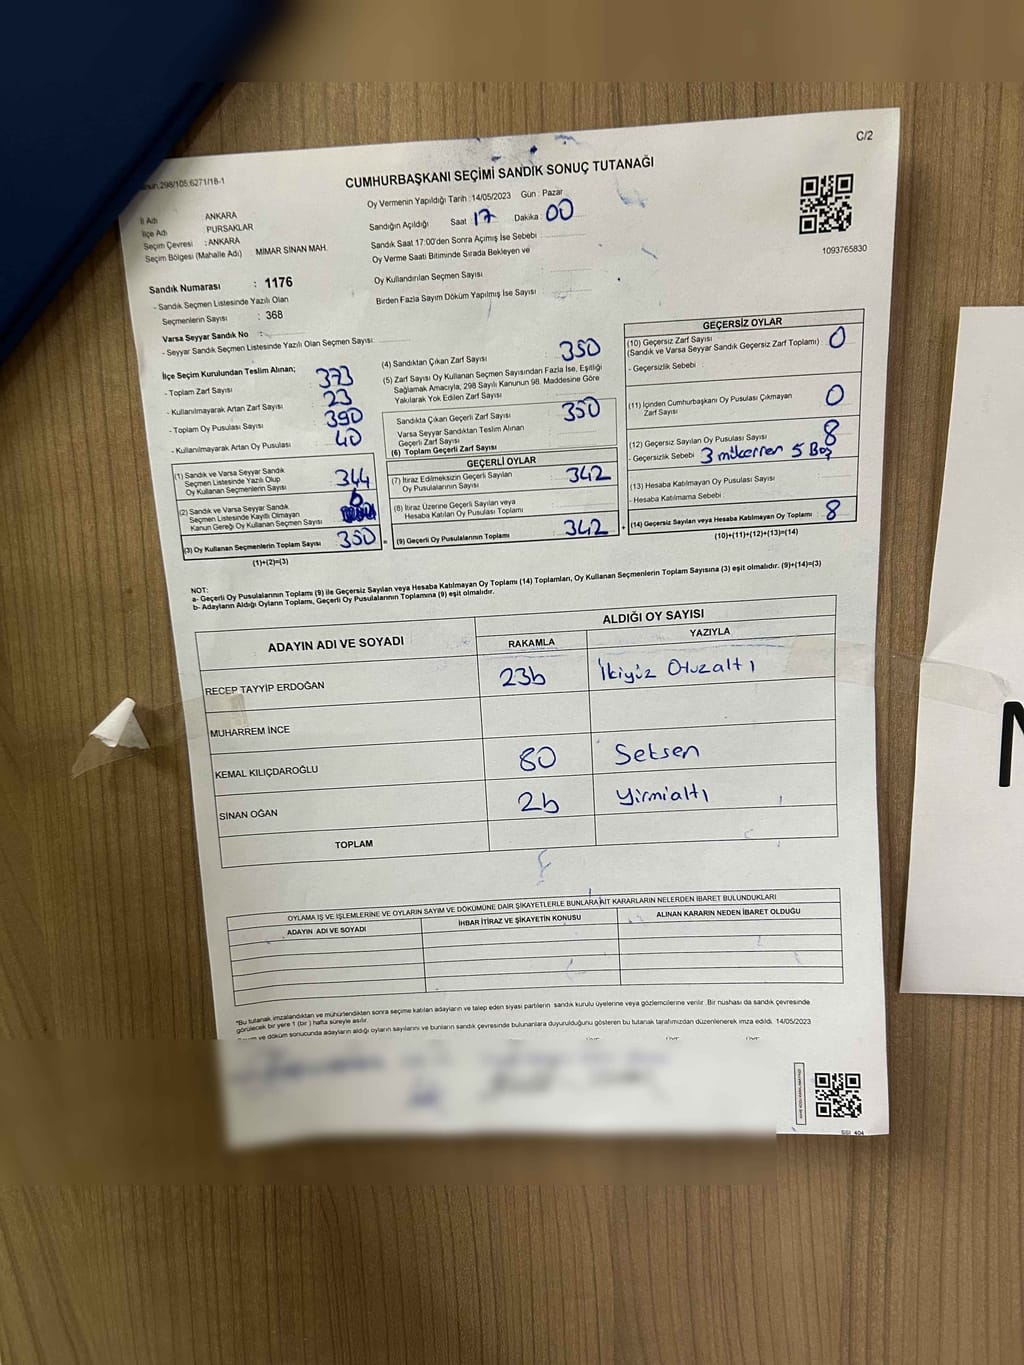 C/2
CUMHURBAŞKANI SEÇİMİ SANDIK SONUÇ TUTANAĞI
298/105;6271/18-1
İl Adı ANKARA
İlçe Adı PURSAKLAR
Seçim Çevresi : ANKARA
Seçim Bölgesi (Mahalle Adı) MİMAR SİNAN MAH.
Oy Vermenin Yapıldığı Tarih : 14/05/2023 Gün : Pazar
Sandığın Açıldığı Saat : 17 Dakika : 00
Sandık Saat 17:00'den Sonra Açımış İse Sebebi
Oy Verme Saati Bitiminde Sırada Bekleyen ve
Oy Kullandırılan Seçmen Sayısı
Birden Fazla Sayım Döküm Yapılmış İse Sayısı
1093765830
Sandık Numarası : 1176
- Sandık Seçmen Listesinde Yazılı Olan
Seçmenlerin Sayısı : 368
Varsa Seyyar Sandık No :
- Seyyar Sandık Seçmen Listesinde Yazılı Olan Seçmen Sayısı:
İlçe Seçim Kurulundan Teslim Alınan;
- Toplam Zarf Sayısı 373
- Kullanılmayarak Artan Zarf Sayısı 23
- Toplam Oy Pusulası Sayısı 390
- Kullanılmayarak Artan Oy Pusulası 40
(1) Sandık ve Varsa Seyyar Sandık
Seçmen Listesinde Yazılı Olup
Oy Kullanan Seçmenlerin Sayısı 344
(2) Sandık ve Varsa Seyyar Sandık
Seçmen Listesinde Kayıtlı Olmayan
Kanun Gereği Oy Kullanan Seçmen Sayısı 6
(3) Oy Kullanan Seçmenlerin Toplam Sayısı 350 =
(1)+(2)=(3)
(4) Sandıktan Çıkan Zarf Sayısı : 350
(5) Zarf Sayısı Oy Kullanan Seçmen Sayısından Fazla İse, Eşitliği
Sağlamak Amacıyla, 298 Sayılı Kanunun 98. Maddesine Göre
Yakılarak Yok Edilen Zarf Sayısı
Sandıkta Çıkan Geçerli Zarf Sayısı : 350
Varsa Seyyar Sandıktan Teslim Alınan
Geçerli Zarf Sayısı
(6) Toplam Geçerli Zarf Sayısı
GEÇERLİ OYLAR
(7) İtiraz Edilmeksizin Geçerli Sayılan
Oy Pusulalarının Sayısı : 342
(8) İtiraz Üzerine Geçerli Sayılan veya
Hesaba Katılan Oy Pusulası Toplamı
(9) Geçerli Oy Pusulalarının Toplamı : 342 +
GEÇERSİZ OYLAR
(10) Geçersiz Zarf Sayısı
(Sandık ve Varsa Seyyar Sandık Geçersiz Zarf Toplamı) : 0
- Geçersizlik Sebebi :
(11) İçinden Cumhurbaşkanı Oy Pusulası Çıkmayan
Zarf Sayısı 0
(12) Geçersiz Sayılan Oy Pusulası Sayısı : 8
- Geçersizlik Sebebi 3 mükerrer 5 Boş
(13) Hesaba Katılmayan Oy Pusulası Sayısı
- Hesaba Katılmama Sebebi
(14) Geçersiz Sayılan veya Hesaba Katılmayan Oy Toplamı : 8
(10)+(11)+(12)+(13)=(14)
NOT:
a- Geçerli Oy Pusulalarının Toplamı (9) ile Geçersiz Sayılan veya Hesaba Katılmayan Oy Toplamı (14) Toplamları, Oy Kullanan Seçmenlerin Toplam Sayısına (3) eşit olmalıdır. (9)+(14)=(3)
b- Adayların Aldığı Oyların Toplamı, Geçerli Oy Pusulalarının Toplamına (9) eşit olmalıdır.
ADAYIN ADI VE SOYADI
ALDIĞI OY SAYISI
RAKAMLA YAZIYLA
RECEP TAYYİP ERDOĞAN 236 İkiyüz Otuzaltı
MUHARREM İNCE
KEMAL KILIÇDAROĞLU 80 Seksen
SİNAN OĞAN 26 Yirmialtı
TOPLAM
OYLAMA İŞ VE İŞLEMLERİNE VE OYLARIN SAYIM VE DÖKÜMÜNE DAİR ŞİKAYETLERLE BUNLARA AİT KARARLARIN NELERDEN İBARET BULUNDUKLARI
ADAYIN ADI VE SOYADI İHBAR İTİRAZ VE ŞİKAYETİN KONUSU ALINAN KARARIN NEDEN İBARET OLDUĞU
*Bu tutanak imzalandıktan ve mühürlendikten sonra seçime katılan adayların ve talep eden siyasi partilerin sandık kurulu üyelerine veya gözlemcilerine verilir. Bir nüshası da sandık çevresinde
görülecek bir yere 1 (bir) hafta süreyle asılır.
ve döküm sonucunda adayların aldığı oyların sayılarını ve bunların sandık çevresinde bulunanlara duyurulduğunu gösteren bu tutanak tarafımızdan düzenlenerek imza edildi. 14/05/2023